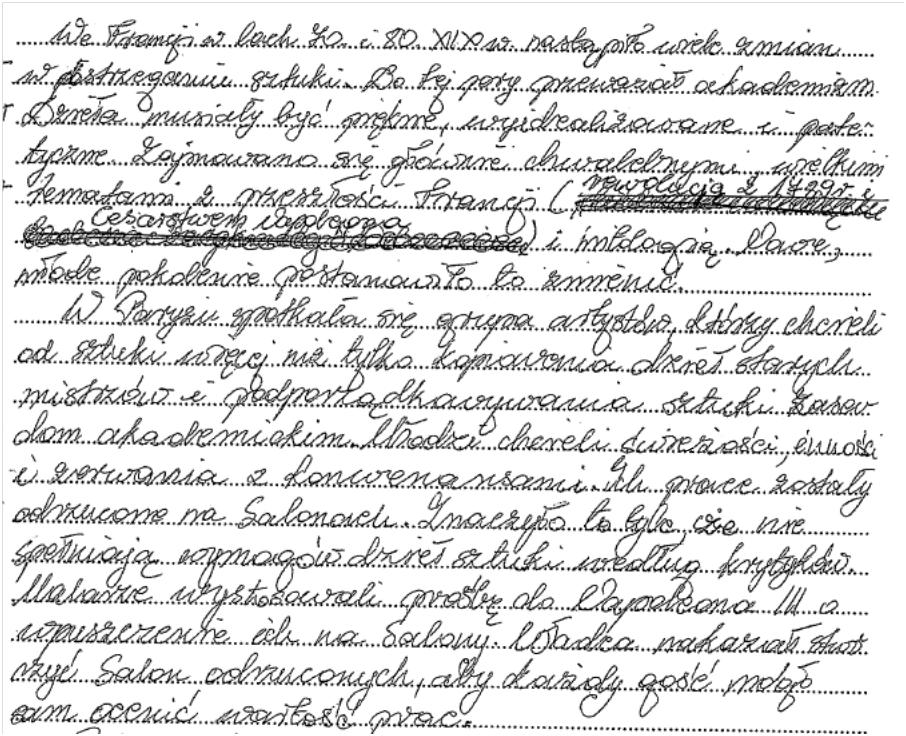 We Francji w lach 70. i 80. XIX w. nastąpiło wiele zmian
w postrzeganiu sztuki. Do tej pory przeważał akademizm.
Dzieła musiały być piękne, wyidealizowane i pate-
tyczne. Zajmowano się głównie chwalebnymi wielkimi
tematami z przeszłości Francji (rewolucją z 1799r. i
Cesarstwem Napoleona) i mitologią. Nowe,
młode pokolenie postanowiło to zmienić.
W Paryżu spotkała się grupa artystów, którzy chcieli
od sztuki więcej niż tylko kopiowania dzieł starych
mistrzów i podporządkowywania sztuki zasa-
dom akademickim. Młodzi chcieli świeżości,
i zerwania z konwenansami. Ich prace zostały
odrzucone na Salonach. Znaczyło to tyle, że nie
spełniają wymogów dzieł sztuki według krytyków.
Malarze wystosowali prośbę do Napoleona III o
wpuszczenie ich na Salony. Władca nakazał stwo-
rzyć Salon odrzuconych, aby każdy gość mógł
sam ocenić wartość prac.